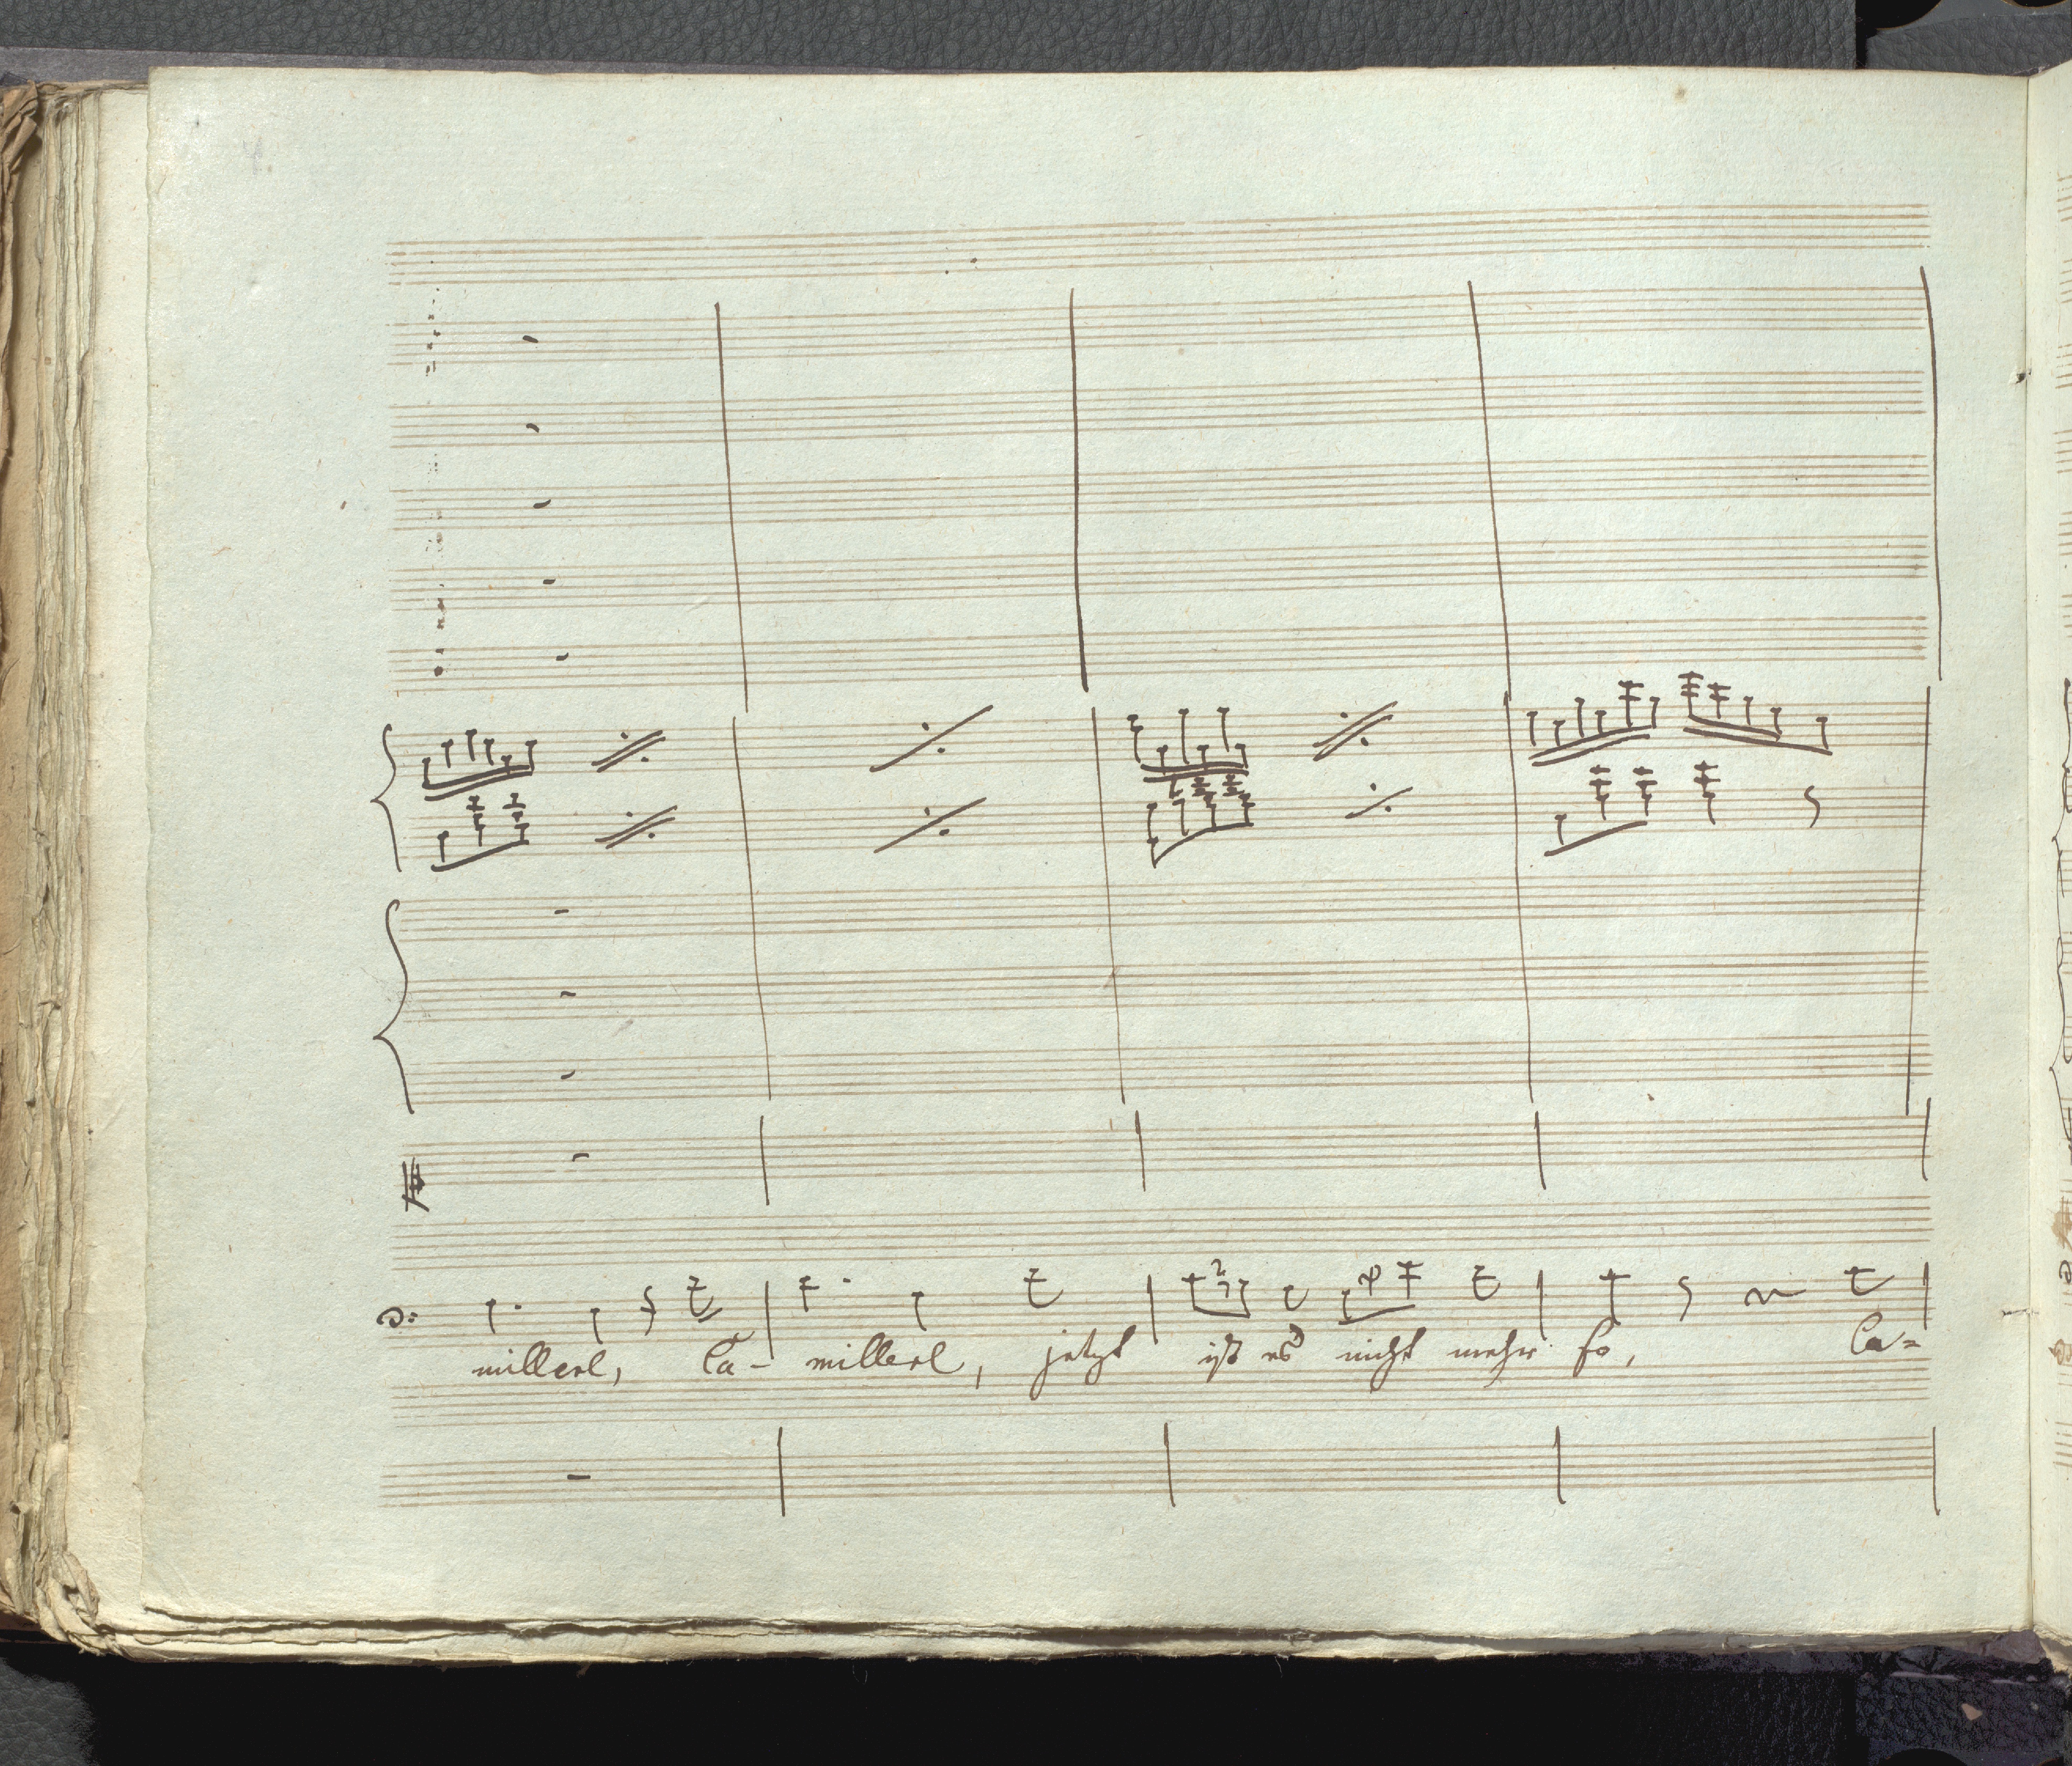 millerl, Ca- millerl, jetzt ist es nicht mehr so, Ca=